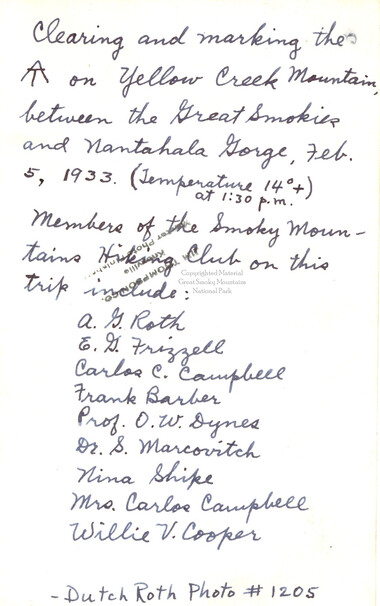 Clearing and marking the
on Yellow Creek Mountain,
between the Great Smokies
and Nantahala Gorge, Feb.
5, 1933. (Temperature 14°+)
at 1:30 p.m.
Members of the Smoky Moun-
tains Hiking Club on this
trip include:
Copyrighted Material
Great Smoky Mountains
National Park
A. G. Roth
E. G. Frizzell
Carlos C. Campbell
Frank Barber
Prof. O. W. Dynes
Dr. S. Marcovitch
Nina Shipe
Mrs. Carlos Campbell
Willie V. Cooper
- Dutch Roth Photo # 1205